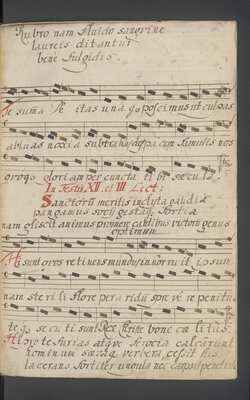 Rubro nam fluido sangvine
laureis ditantur
bene fulgidis.
Te suma ô Deitas unaq poscimus ut culpas
abluas noxia subtrahas des pacem famulis nos
oroq gloriam per cuncta tibi sæcula
In Festis XII. et III Lect:
Sanctorũ meritis inclyta gaudia
pangamus socij gestaq fortia
nam gliscit animus promere cantibus victorũ genus
optimum
Hi sunt quos retinens mundus inhorruit, ipsum
nam sterili flore peraridũ sprevere penitus
teq secuti sunt Rex Christe bone cælitus.
Hi pro te furias atque ferocia calcarunt
hominum sævaq verbera, cessit his
lacerans fortiter ungula nec carpsit penetral